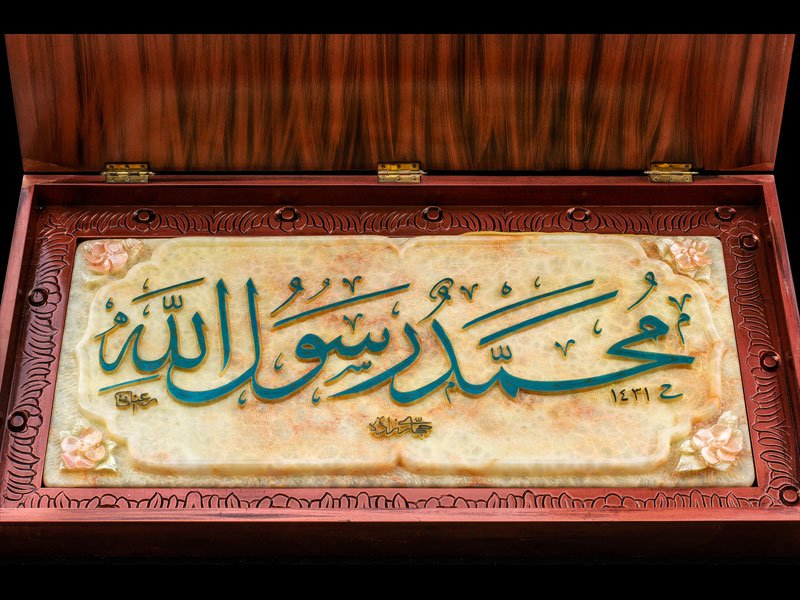 مُحَمَّدٌ رَسُولُ اللهِ
١٤٣١